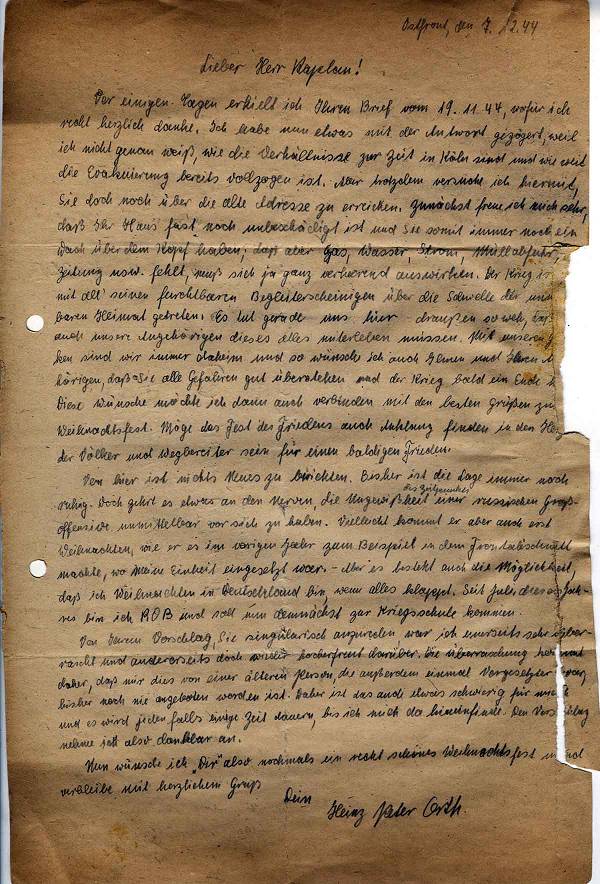 Ostfront, den 7. 12.44
Lieber Herr Kaplan!
Vor einigen Tagen erhielt ich Ihren Brief vom 19.11.44, wofür ich
recht herzlich danke. Ich habe nun etwas mit der Antwort gezögert, weil
ich nicht genau weiß, wie die Verhältnisse zur Zeit in Köln sind und wie weit
die Evakuierung bereits vollzogen ist. Aber trotzdem versuche ich hiermit,
Sie doch noch über die alte Adresse zu erreichen. Zunächst freue ich mich sehr,
daß Ihr Haus fast noch unbeschädigt ist und Sie somit immer noch ein
Dach über dem Kopf haben; daß aber Gas, Wasser, Strom, Müllabfuhr,
Zeitung usw. fehlt, muß sich ja ganz verheerend auswirken. Der Krieg is
mit all' seinen furchtbaren Begleiterscheinigen über die Schwelle der
baren Heimat getreten. Es tut gerade uns hier draußen so weh, daß
auch unsere Angehörigen dieses alles miterleben müssen. Mit unseren
ken sind wir immer daheim und so wünsche ich auch Ihnen und Ihren
hörigen, daß Sie alle Gefahren gut überstehen und der Krieg bald ein Ende
Diese Wünsche möchte ich dann auch verbinden mit den besten Grüßen zu
Weihnachtsfest. Möge das Fest des Friedens auch Anklang finden in den
der Völker und Wegbereiter sein für einen baldigen Frieden.
Von hier ist nichts Neues zu berichten. Bisher ist die Lage immer noch
ruhig. Doch gehrt es etwas an den Nerven, die Ungewißheit des Zeitpunktes einer russischen Groß-
offensive unmittelbar vor sich zu haben. Vielleicht kommt er aber auch erst
Weihnachten, wie er es im vorigen Jahr zum Beispiel in dem Frontabschnitt
machte, wo meine Einheit eingesetzt war. – Aber es besteht auch die Möglichkeit,
daß ich Weihnachten in Deutschland bin, wenn alles klappt. Seit Juli dieses Jah-
res bin ich ROB und soll nun demnächst zur Kriegsschule kommen.
Von Ihrem Vorschlag, Sie singularisch anzureden war ich einerseits sehr über-
rascht und andererseits doch wieder hocherfreut darüber. Die Überraschung
daher, daß mir dies von einer älteren Person, die außerdem einmal Vorgesetzter war,
bisher noch nie angeboten worden ist. Daher ist das auch etwas schwierig für mich
und es wird jedenfalls einige Zeit dauern, bis ich mich da hineinfinde. Den Vorschlag
nehme ich also dankbar an.
Nun wünsche ich „Dir" also nochmals ein recht schönes Weihnachtsfest und
verbleibe mit herzlichem Gruß
Dein
Heinz Peter Orth.